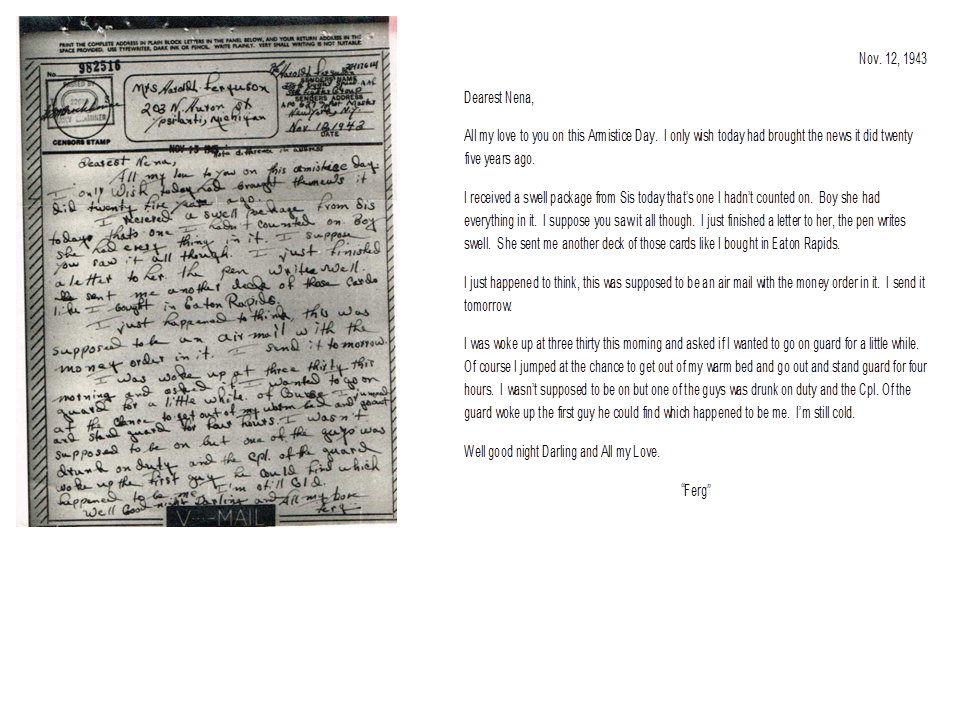 PRINT THE COMPLETE ADDRESS IN PLAIN BLOCK LETTERS IN THE PANEL BELOW, AND YOUR RETURN ADDRESS IN THE
SPACE PROVIDED. USE TYPEWRITER, DARK INK OR PENCIL. WRITE PLAINLY. VERY SMALL WRITING IS NOT SUITABLE.
No. 982516
Mrs Harold Ferguson
203 N. Huron St
Ypsilanti, Michigan
Harold Ferguson
SENDER'S NAME
SENDER'S ADDRESS
New York, N.Y.
Nov. 12, 1943
DATE
CENSOR'S STAMP
NOV 15
Note difference in address
Dearest Nena,
All my love to you on this amistice Day.
I only wish today had brought the news it
did twenty five years ago.
I received a swell package from Sis
today thats one I hadn't counted on. Boy
she had every thing in it. I suppose
you saw it all though. I just finished
a letter to her the pen writes swell.
sent me another deck of those cards
like I bought in Eaton Rapids.
I just happened to think, this was
supposed to be an air mail with the
money order in it. I send it tomorrow.
I was woke up at three thirty this
morning and asked if I wanted to go on
guard for a little while. Of course I jumped
at the chance to get out of my warm bed and go out
and stand guard for four hours. I wasn't
supposed to be on but one of the guys was
drunk on duty and the Cpl. of the guard
woke up the first guy he could find which
happened to be me. I'm still cold.
Well Good night Darling and All my love
Ferg
V···—MAIL
Nov. 12, 1943
Dearest Nena,
All my love to you on this Amistice Day. I only wish today had brought the news it did twenty
five years ago.
I received a swell package from Sis today that's one I hadn't counted on. Boy she had
everything in it. I suppose you saw it all though. I just finished a letter to her, the pen writes
swell. She sent me another deck of those cards like I bought in Eaton Rapids.
I just happened to think, this was supposed to be an air mail with the money order in it. I send it
tomorrow.
I was woke up at three thirty this morning and asked if I wanted to go on guard for a little while.
Of course I jumped at the chance to get out of my warm bed and go out and stand guard for four
hours. I wasn't supposed to be on but one of the guys was drunk on duty and the Cpl. Of the
guard woke up the first guy he could find which happened to be me. I'm still cold.
Well good night Darling and All my Love.
"Ferg"